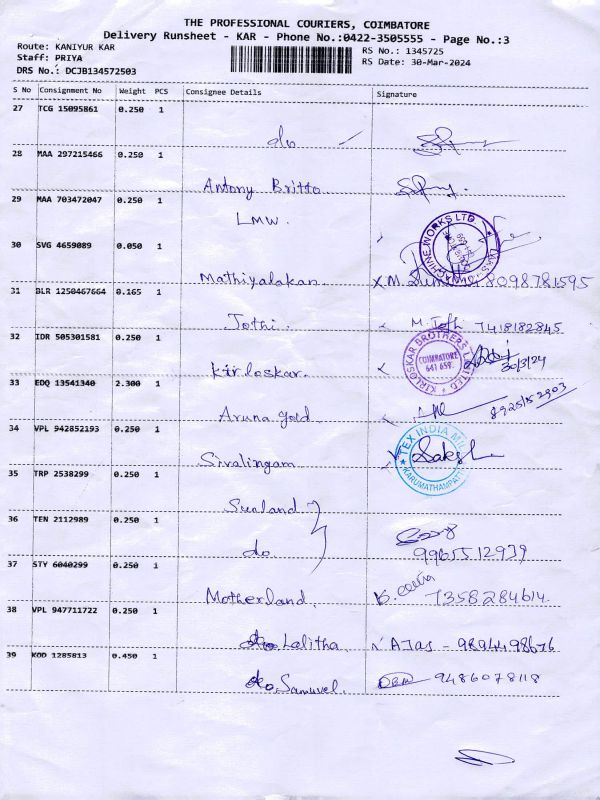 THE PROFESSIONAL COURIERS, COIMBATORE
Delivery Runsheet - KAR - Phone No.:0422-3505555 - Page No.:3
Route: KANIYUR KAR
Staff: PRIYA
DRS No.: DCJB134572503
RS No.: 1345725
RS Date: 30-Mar-2024
S No Consignment No Weight PCS Consignee Details Signature
27 TCG 15095861 0.250 1
do
28 MAA 297215466 0.250 1
Antony Britto
29 MAA 703472047 0.250 1
LMW.
30 SVG 4659089 0.050 1
Mathiyalakan X M. 8098781595
31 BLR 1250467664 0.165 1
Jothi. M. Jothi 7418182845
32 IDR 505301581 0.250 1
KIRLOSKAR BROTHERS LIMITED
COIMBATORE
641 659.
Kirloskar. 30/3/24
33 EDQ 13541340 2.300 1
Aruna gold
34 VPL 942852193 0.250 1
TEX INDIA MILL
KARUMATHAMPATTI
Sivalingam
35 TRP 2538299 0.250 1
Sunland
36 TEN 2112989 0.250 1
do 9965512939
37 STY 6040299 0.250 1
Motherland. 7358284614.
38 VPL 947711722 0.250 1
Lalitha. AJAS - 9894498676
39 KOD 1285813 0.450 1
Samuvel. 9486078118